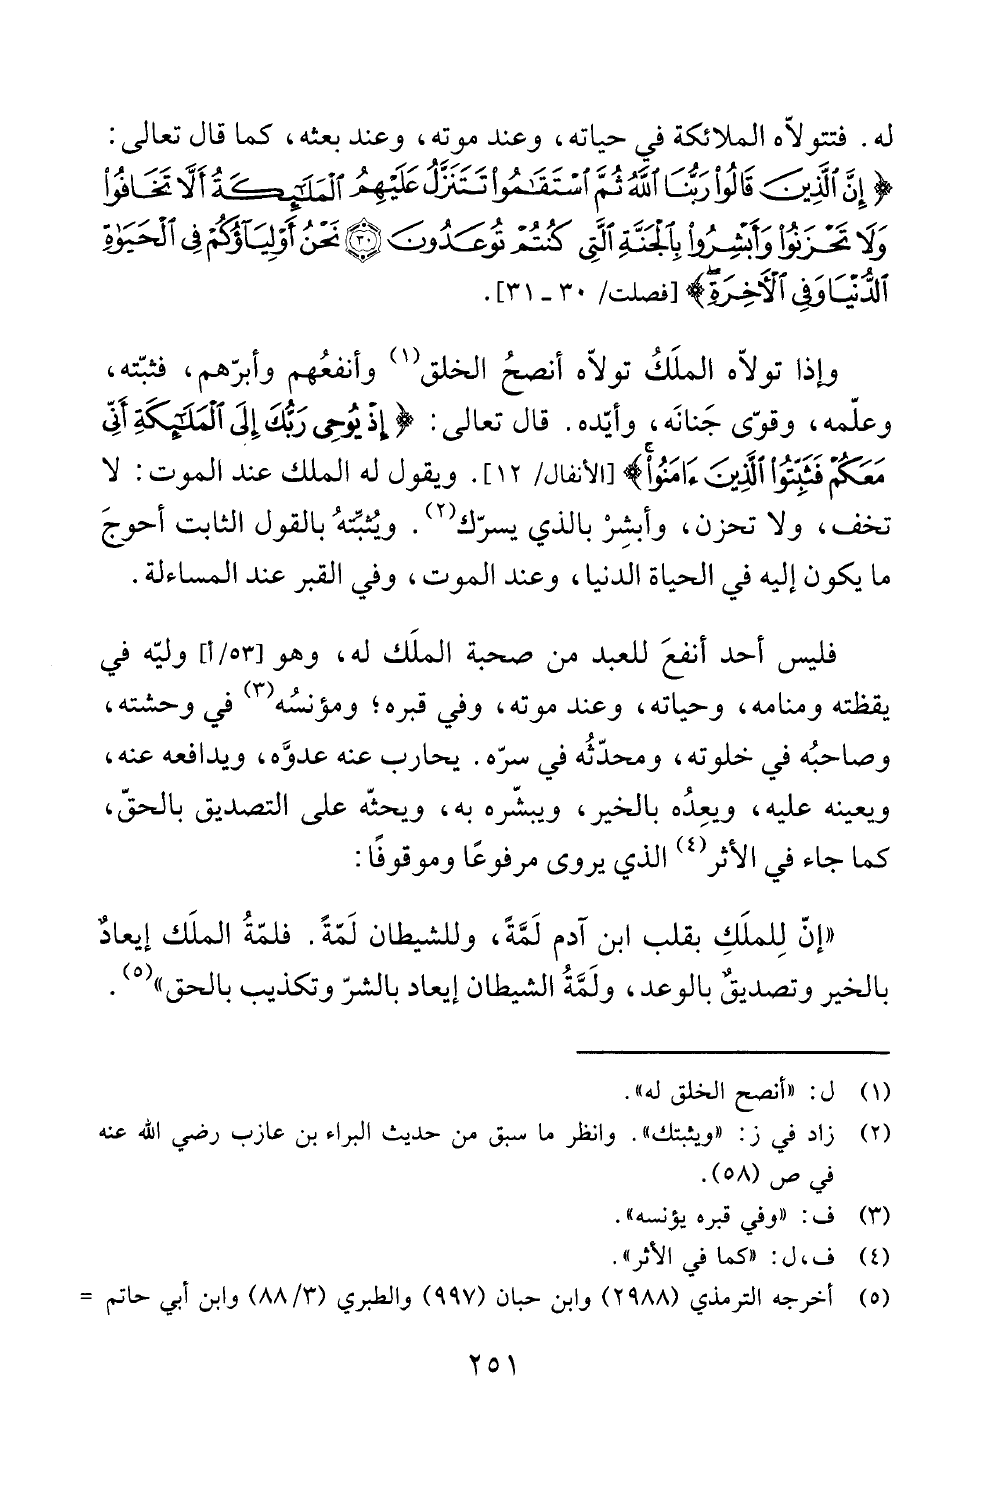 له. فتتولاّه الملائكة في حياته، وعند موته، وعند بعثه، كما قال تعالى:
﴿إِنَّ ٱلَّذِينَ قَالُوا۟ رَبُّنَا ٱللَّهُ ثُمَّ ٱسْتَقَـٰمُوا۟ تَتَنَزَّلُ عَلَيْهِمُ ٱلْمَلَـٰٓئِكَةُ أَلَّا تَخَافُوا۟
وَلَا تَحْزَنُوا۟ وَأَبْشِرُوا۟ بِٱلْجَنَّةِ ٱلَّتِى كُنتُمْ تُوعَدُونَ ۝٣٠ نَحْنُ أَوْلِيَآؤُكُمْ فِى ٱلْحَيَوٰةِ
ٱلدُّنْيَا وَفِى ٱلْـَٔاخِرَةِ ۖ﴾ [فصلت/ ٣٠ ـ ٣١].
وإذا تولاّه الملَكُ تولاّه أنصحُ الخلق(١) وأنفعُهم وأبرّهم، فثبّته،
وعلّمه، وقوّى جَنانَه، وأيّده. قال تعالى: ﴿إِذْ يُوحِى رَبُّكَ إِلَى ٱلْمَلَـٰٓئِكَةِ أَنِّى
مَعَكُمْ فَثَبِّتُوا۟ ٱلَّذِينَ ءَامَنُوا۟ ۚ﴾ [الأنفال/ ١٢]. ويقول له الملك عند الموت: لا
تخف، ولا تحزن، وأبشِرْ بالذي يسرّك(٢). ويُثبِّتهُ بالقول الثابت أحوجَ
ما يكون إليه في الحياة الدنيا، وعند الموت، وفي القبر عند المساءلة.
فليس أحد أنفعَ للعبد من صحبة الملَك له، وهو [٥٣/أ] وليّه في
يقظته ومنامه، وحياته، وعند موته، وفي قبره؛ ومؤنسُه(٣) في وحشته،
وصاحبُه في خلوته، ومحدّثُه في سرّه. يحارب عنه عدوَّه، ويدافعه عنه،
ويعينه عليه، ويعِدُه بالخير، ويبشّره به، ويحثّه على التصديق بالحقّ،
كما جاء في الأثر(٤) الذي يروى مرفوعًا وموقوفًا:
«إنّ لِلملَكِ بقلب ابن آدم لَمَّةً، وللشيطان لَمّةً. فلمّةُ الملَك إيعادٌ
بالخير وتصديقٌ بالوعد، ولَمَّةُ الشيطان إيعاد بالشرّ وتكذيب بالحق»(٥).
(١) ل: «أنصح الخلق له».
(٢) زاد في ز: «ويثبتك». وانظر ما سبق من حديث البراء بن عازب رضي الله عنه
في ص (٥٨).
(٣) ف: «وفي قبره يؤنسه».
(٤) ف،ل: «كما في الأثر».
(٥) أخرجه الترمذي (٢٩٨٨) وابن حبان (٩٩٧) والطبري (٨٨/٣) وابن أبي حاتم =
٢٥١